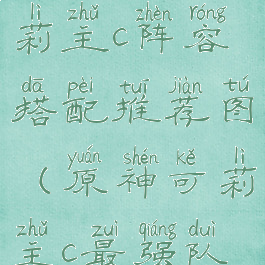 lì zhǔ zhèn róng
莉主c阵容
dā pèi tuī jiàn tú
搭配推荐图
yuán shén kě lì
(原神可莉
zhǔ zuì qiáng duì
主c最强队